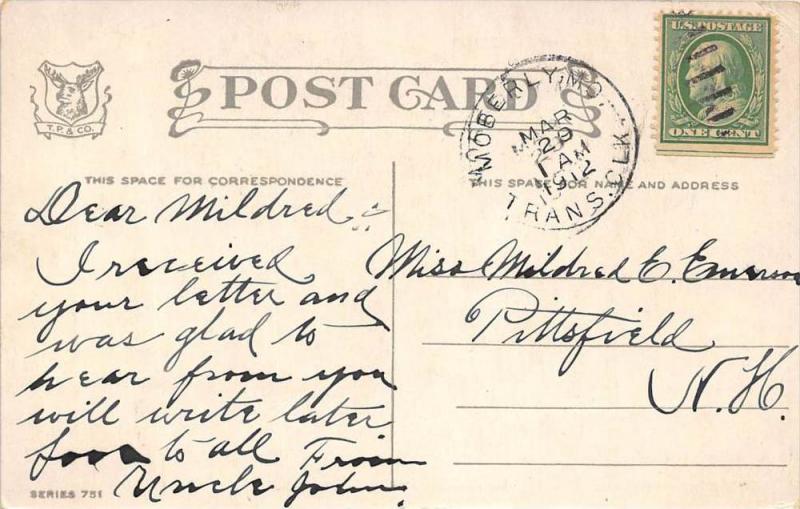 U.S. POSTAGE
ONE CENT
T.P. & CO.
POST CARD
MOBERLY, MO.
MAR
29
1 AM
1912
TRANS. CLK
THIS SPACE FOR CORRESPONDENCE
THIS SPACE FOR NAME AND ADDRESS
Dear Mildred
I received
your letter and
was glad to
hear from you
will write later
to all From
Uncle John.
Miss Mildred E. Emerson
Pittsfield
N.H.
SERIES 751